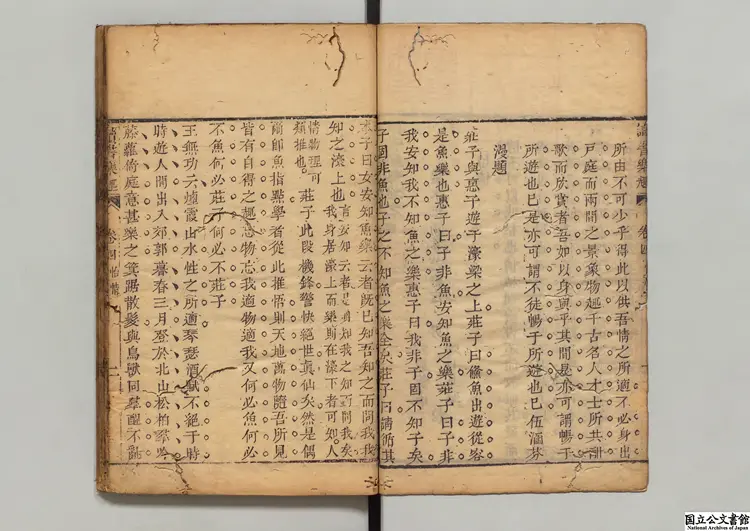 所由不可少乎得此以供吾情之所適不必身出
戶庭而兩間之景象物趣千古名人才士所共謌
歌而欣賞者吾如以身與乎其間是亦可謂暢于
所遊也已是亦可謂不徒暢于所遊也已伍涵芬
漫題
莊子與惠子遊于濠梁之上莊子曰儵魚出遊從容
是魚樂也惠子曰子非魚安知魚之樂莊子曰子非
我安知我不知魚之樂惠子曰我非子固不知子矣
子固非魚也子之不知魚之樂全矣莊子曰請循其
本子曰女安知魚樂云者既已知吾知之而問我我
知之濠上也
我身居濠上而樂則在濠下者可知人
情物理可
類推也。
莊子此段機鋒警快絕世真仙矣然是偶
爾即魚指點學者從此推悟則天地萬物隨吾所見
皆有自得之趣忘物忘我適物適我又何必魚何必
不魚何必莊子何必不莊子
王無功云煙霞山水性之所適琴瑟酒賦不絕于時
時遊人間出入郊郭暮春三月登於北山松柏羣
藤蘿倚庭意甚樂之箕踞散髮與鳥獸同羣醒不亂
讀書樂趣
卷四
怡情
国立公文書館
National Archives of Japan